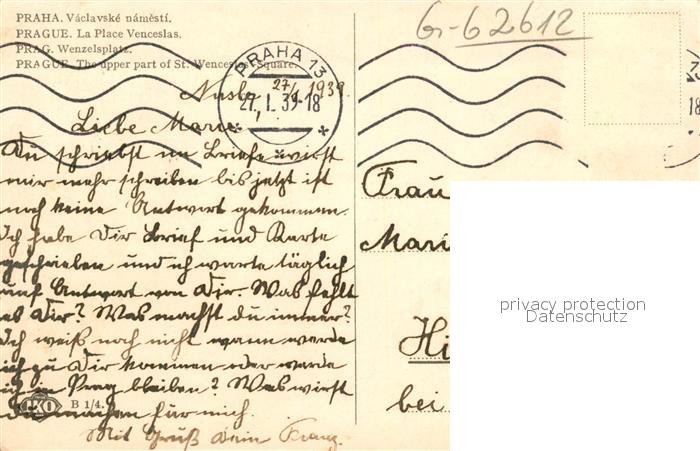 PRAHA. Václavské náměstí.
PRAGUE. La Place Venceslas.
PRAG. Wenzelsplatz.
PRAGUE. The upper part of St. Wenceslas-Square.
G-62612
PRAHA 13
27. I. 39-18
18
Nusle 27/1 1939.
Liebe Marie
Du schriebst im Briefe wirst
mir mehr schreiben bis jetzt ist
noch keine Antwort gekommen.
Ich habe Dir Brief und Karte
geschrieben und ich warte täglich
auf Antwort von Dir. Was fehlt
es Dir? Was machst du immer?
Ich weiß noch nicht wann werde
ich zu Dir kommen oder werde
ich in Prag bleiben? Was wirst
du machen für mich.
Mit Gruß Dein Franz.
B 1/4.
Frau
Mari
Hi
bei
privacy protection
Datenschutz